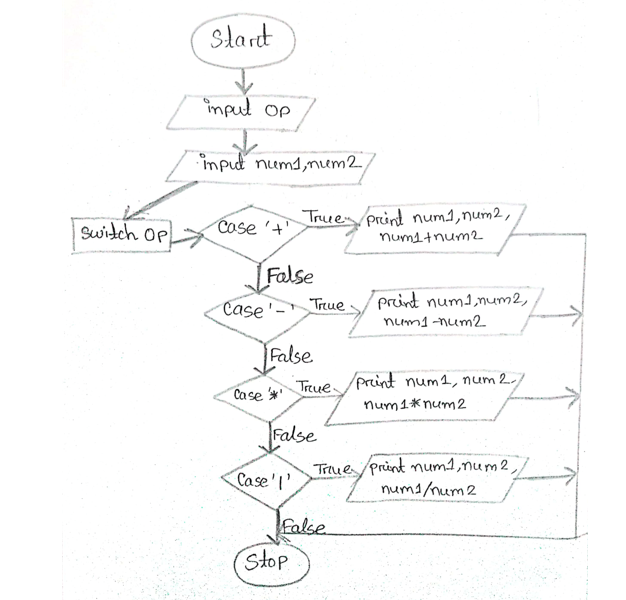 Start
input OP
input num1,num2
switch OP
case '+'
True
print num1,num2,
num1+num2
False
case '-'
True
print num1,num2,
num1-num2
False
case '*'
True
print num1, num2.
num1*num2
False
case '/'
True
print num1,num2,
num1/num2
False
Stop